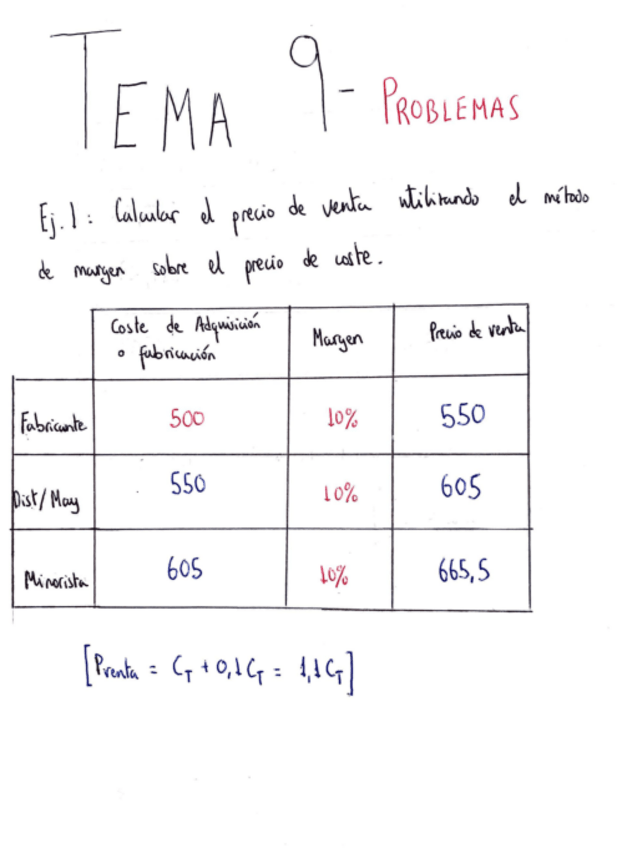 TEMA 9 - PROBLEMAS
Ej. 1: Calcular el precio de venta utilizando el método
de margen sobre el precio de coste.
Coste de Adquisición
o fabricación
Margen
Precio de venta
Fabricante 500 10% 550
Dist/May 550 10% 605
Minorista 605 10% 665,5
[Pventa = CT + 0,1 CT = 1,1 CT]